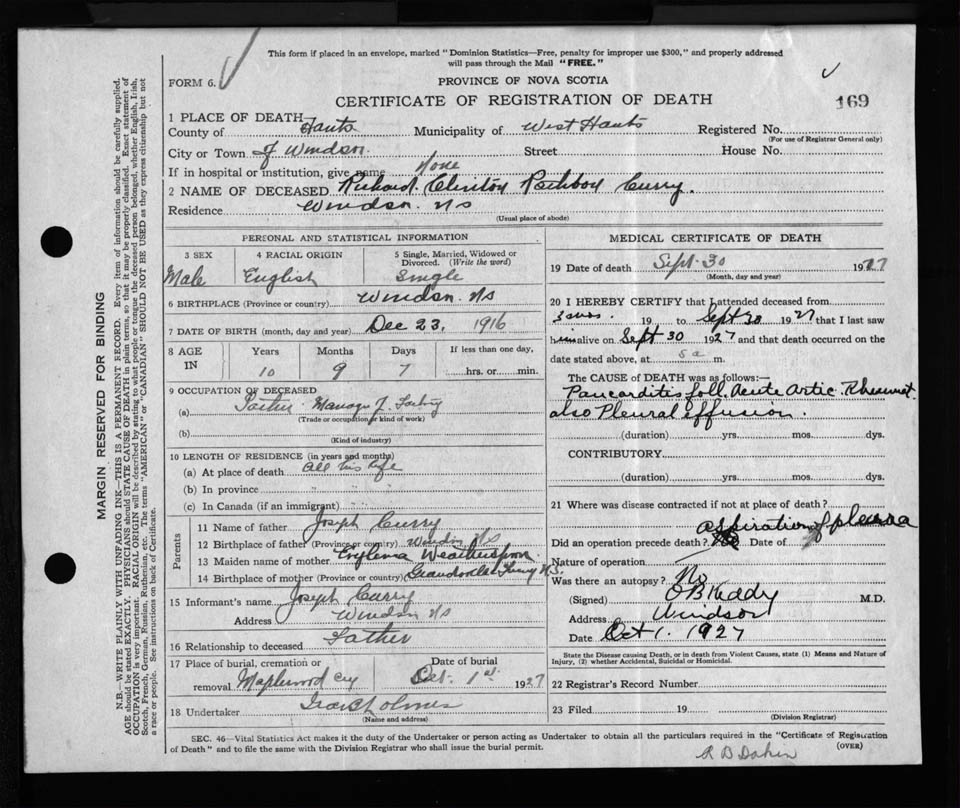 This form if placed in an envelope, marked "Dominion Statistics—Free, penalty for improper use $300," and properly addressed
will pass through the Mail "FREE."
FORM 6.
PROVINCE OF NOVA SCOTIA
CERTIFICATE OF REGISTRATION OF DEATH
169
1 PLACE OF DEATH
County of Hants Municipality of West Hants Registered No.
(For use of Registrar General only)
City or Town of Windsor Street House No.
If in hospital or institution, give name None
2 NAME OF DECEASED Richard Clinton Curry.
Residence Windsor. NS
(Usual place of abode)
PERSONAL AND STATISTICAL INFORMATION
3 SEX 4 RACIAL ORIGIN 5 Single, Married, Widowed or
Divorced. (Write the word)
Male English Single
6 BIRTHPLACE (Province or country) Windsor. NS
7 DATE OF BIRTH (month, day and year) Dec 23, 1916
8 AGE Years Months Days If less than one day,
IN 10 9 7 hrs. or min.
9 OCCUPATION OF DECEASED
(a) Manager
(Trade or occupation or kind of work)
(b)
(Kind of industry)
10 LENGTH OF RESIDENCE (in years and months)
(a) At place of death All his life
(b) In province " "
(c) In Canada (if an immigrant) " "
Parents
11 Name of father Joseph Curry
12 Birthplace of father (Province or country) Windsor NS
13 Maiden name of mother
14 Birthplace of mother (Province or country) N.S.
15 Informant's name Joseph Curry
Address Windsor NS
16 Relationship to deceased Father
17 Place of burial, cremation or Date of burial
removal Maplewood Cy Oct. 1st. 1927
18 Undertaker
(Name and address)
MEDICAL CERTIFICATE OF DEATH
19 Date of death Sept 30 1927
(Month, day and year)
20 I HEREBY CERTIFY that I attended deceased from
3 mos. 19 to Sept 30 1927 that I last saw
him alive on Sept 30 1927 and that death occurred on the
date stated above, at 5 a m.
The CAUSE of DEATH was as follows:—
Pancarditis foll. Acute Artic. Rheumat.
also Pleural effusion.
(duration) yrs. mos. dys.
CONTRIBUTORY
(duration) yrs. mos. dys.
21 Where was disease contracted if not at place of death?
aspiration of pleura
Did an operation precede death? Date of
Nature of operation
Was there an autopsy? No
(Signed) O B Keddy M.D.
Address Windsor
Date Oct 1. 1927
State the Disease causing Death, or in death from Violent Causes, state (1) Means and Nature of
Injury, (2) whether Accidental, Suicidal or Homicidal.
22 Registrar's Record Number
23 Filed 19
(Division Registrar)
SEC. 46—Vital Statistics Act makes it the duty of the Undertaker or person acting as Undertaker to obtain all the particulars required in the "Certificate of Registration
of Death" and to file the same with the Division Registrar who shall issue the burial permit.
(OVER)
R B Dakin
MARGIN RESERVED FOR BINDING
N.B.—WRITE PLAINLY WITH UNFADING INK—THIS IS A PERMANENT RECORD. Every item of information should be carefully supplied.
AGE should be stated EXACTLY. PHYSICIANS should STATE CAUSE OF DEATH in plain terms, so that it may be properly classified. Exact statement of
OCCUPATION is very important. RACIAL ORIGIN will be described by stating to what people or tongue the deceased person belonged, whether English, Irish,
Scotch, French, German, Russian, Ruthenian, etc. The terms "AMERICAN" or "CANADIAN" SHOULD NOT BE USED as they express citizenship but not
a race or people. See instructions on back of Certificate.